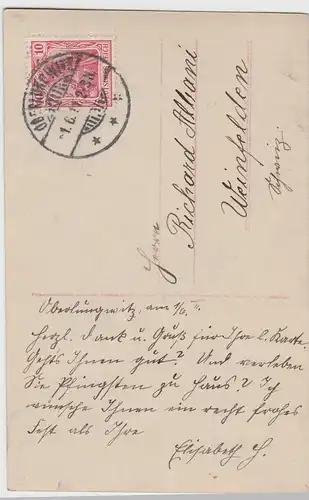 10
Herrn
Richard Altani
Weinfelden
Schweiz.
Oberlungwitz, am 1/6. 11.
Herzl. Dank u. Gruß für Ihre l. Karte.
Gehts Ihnen gut? Und verleben
Sie Pfingsten zu Haus? Ich
wünsche Ihnen ein recht frohes
Fest als Ihre
Elisabeth H.